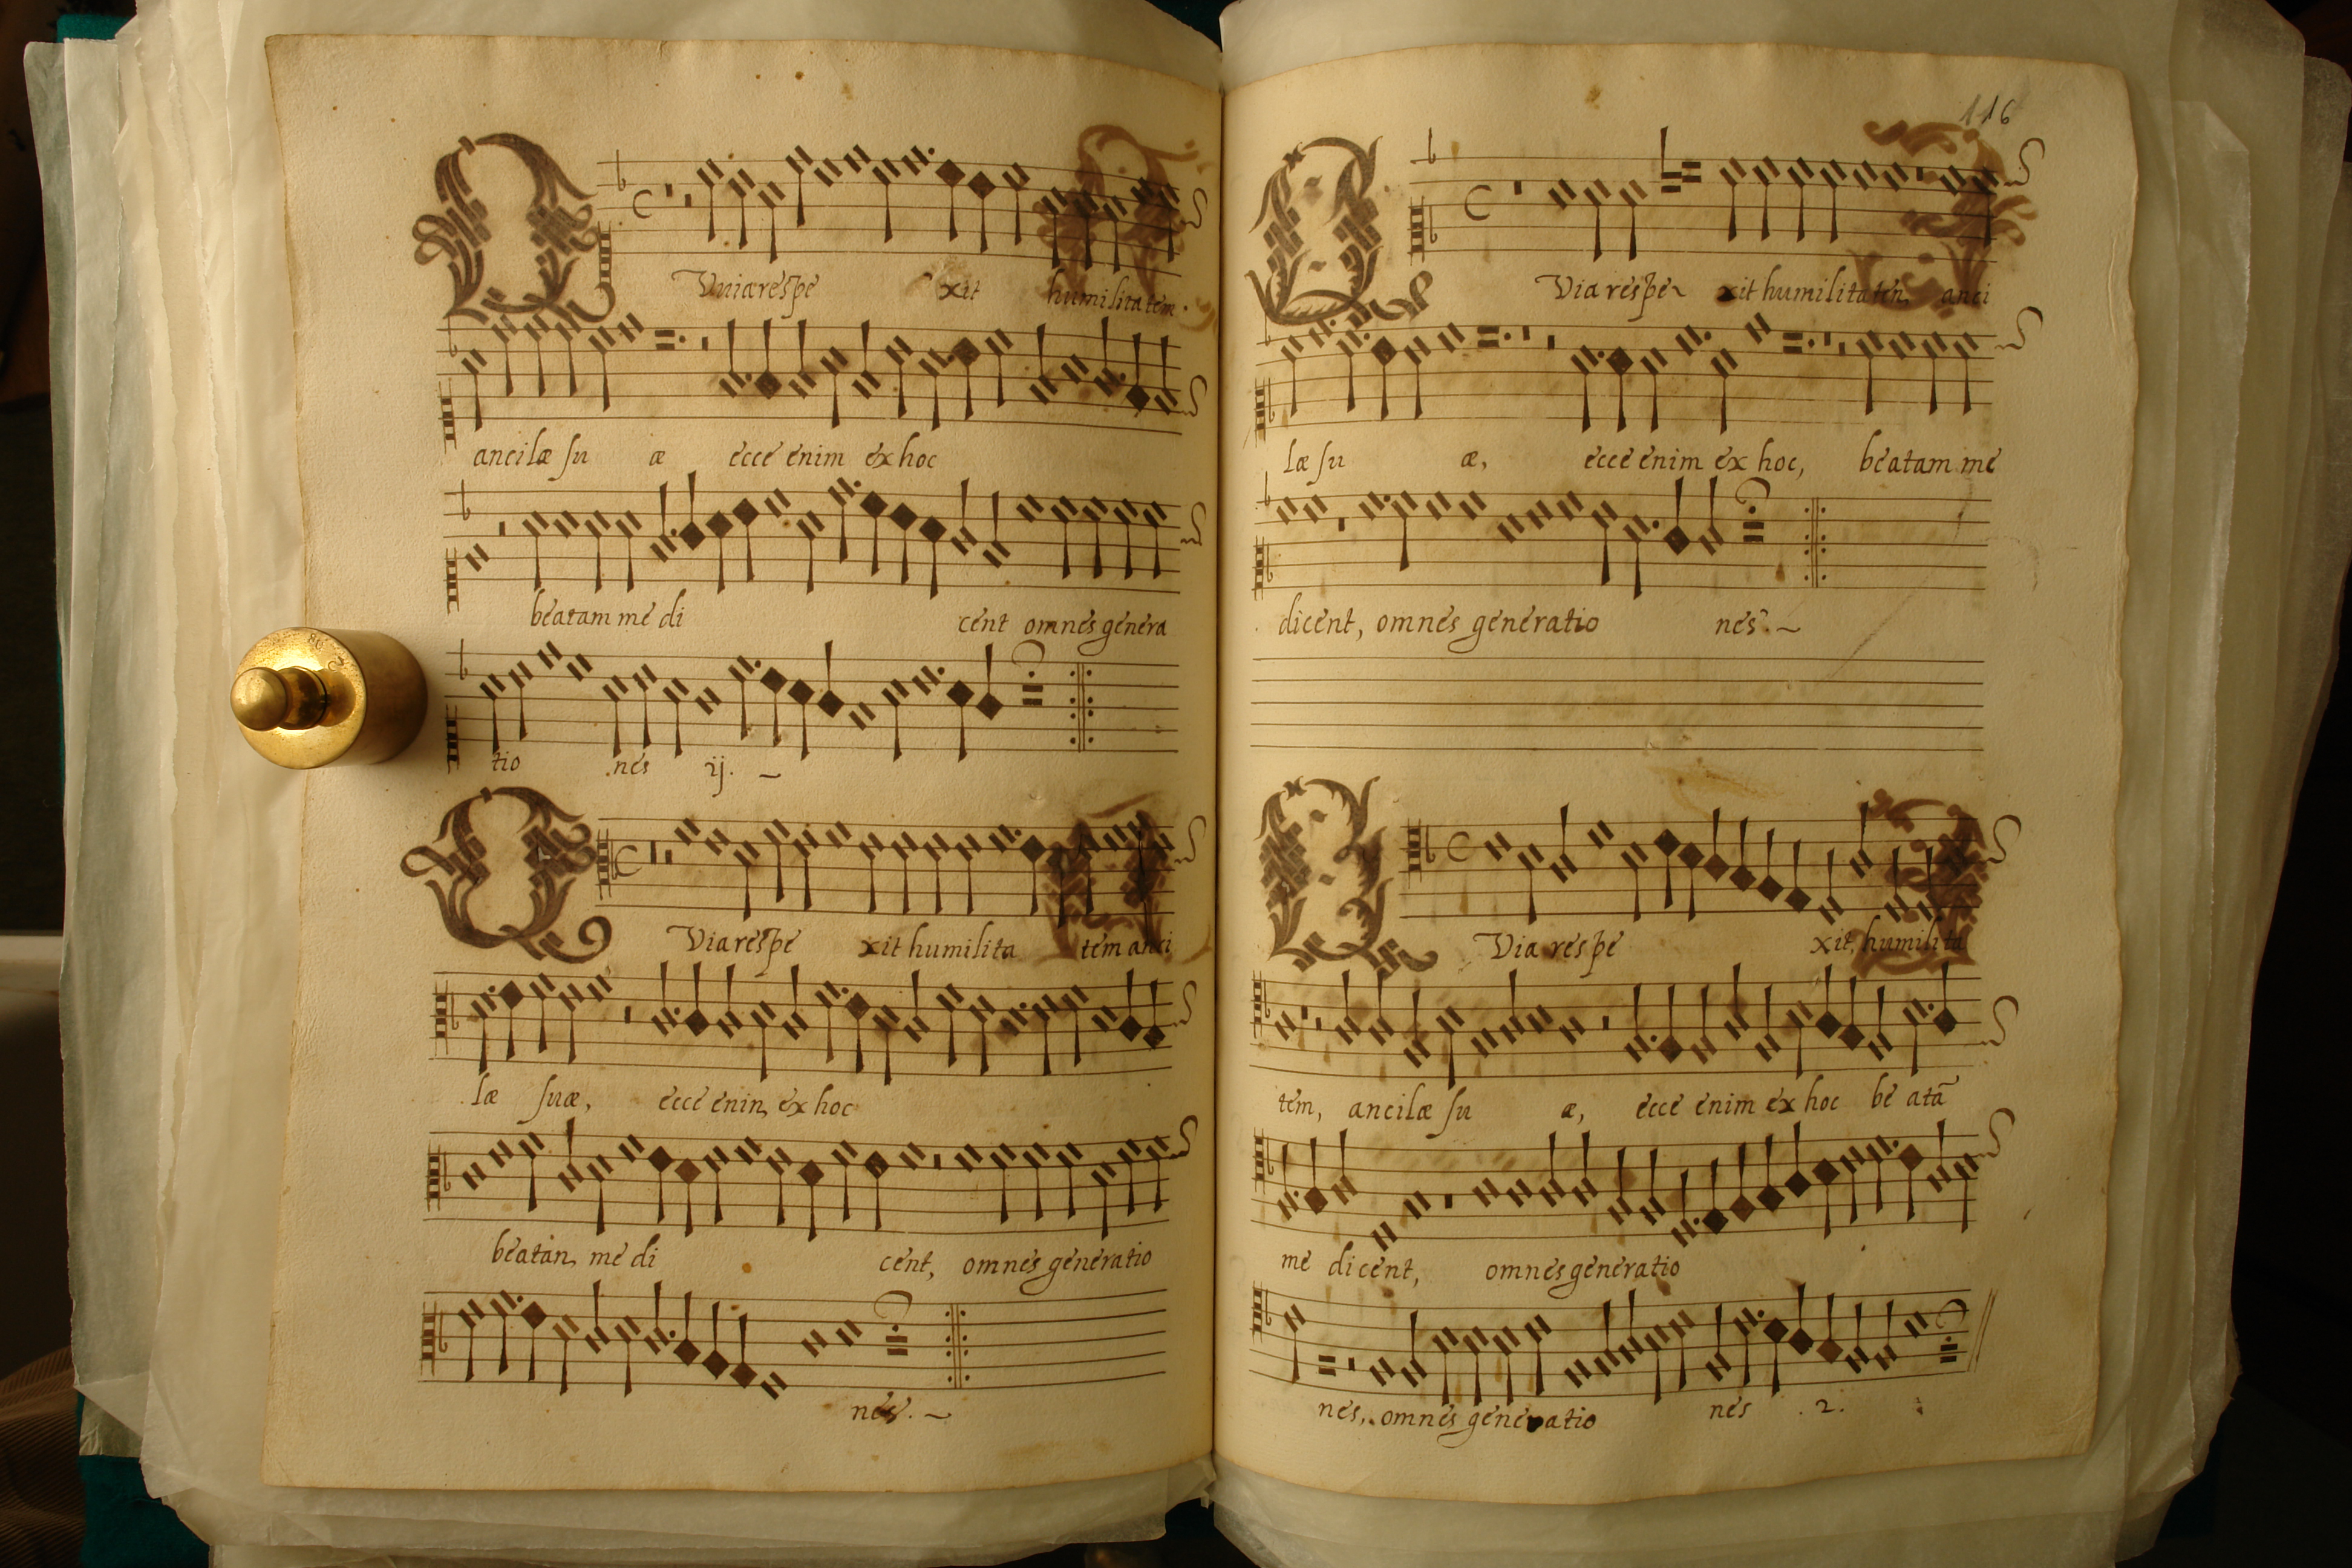 Q Vniarespe xit humilitatem.
ancilæ su æ ecce enim ex hoc
beatam me di cent omnes genera
tio nes ij.
Q Viarespe xit humilita tem anci
læ suæ, ecce enin, ex hoc
beatan, me di cent, omnes generatio
nes.
116
Q Via respe xit humilitaten, anci
læ su æ, ecce enim ex hoc, beatam me
dicent, omnes generatio nes.
Q Via respe xit, humilita
tem, ancilæ su æ, ecce enim ex hoc be atã
me dicent, omnes generatio
nes, omnes generatio nes .2.